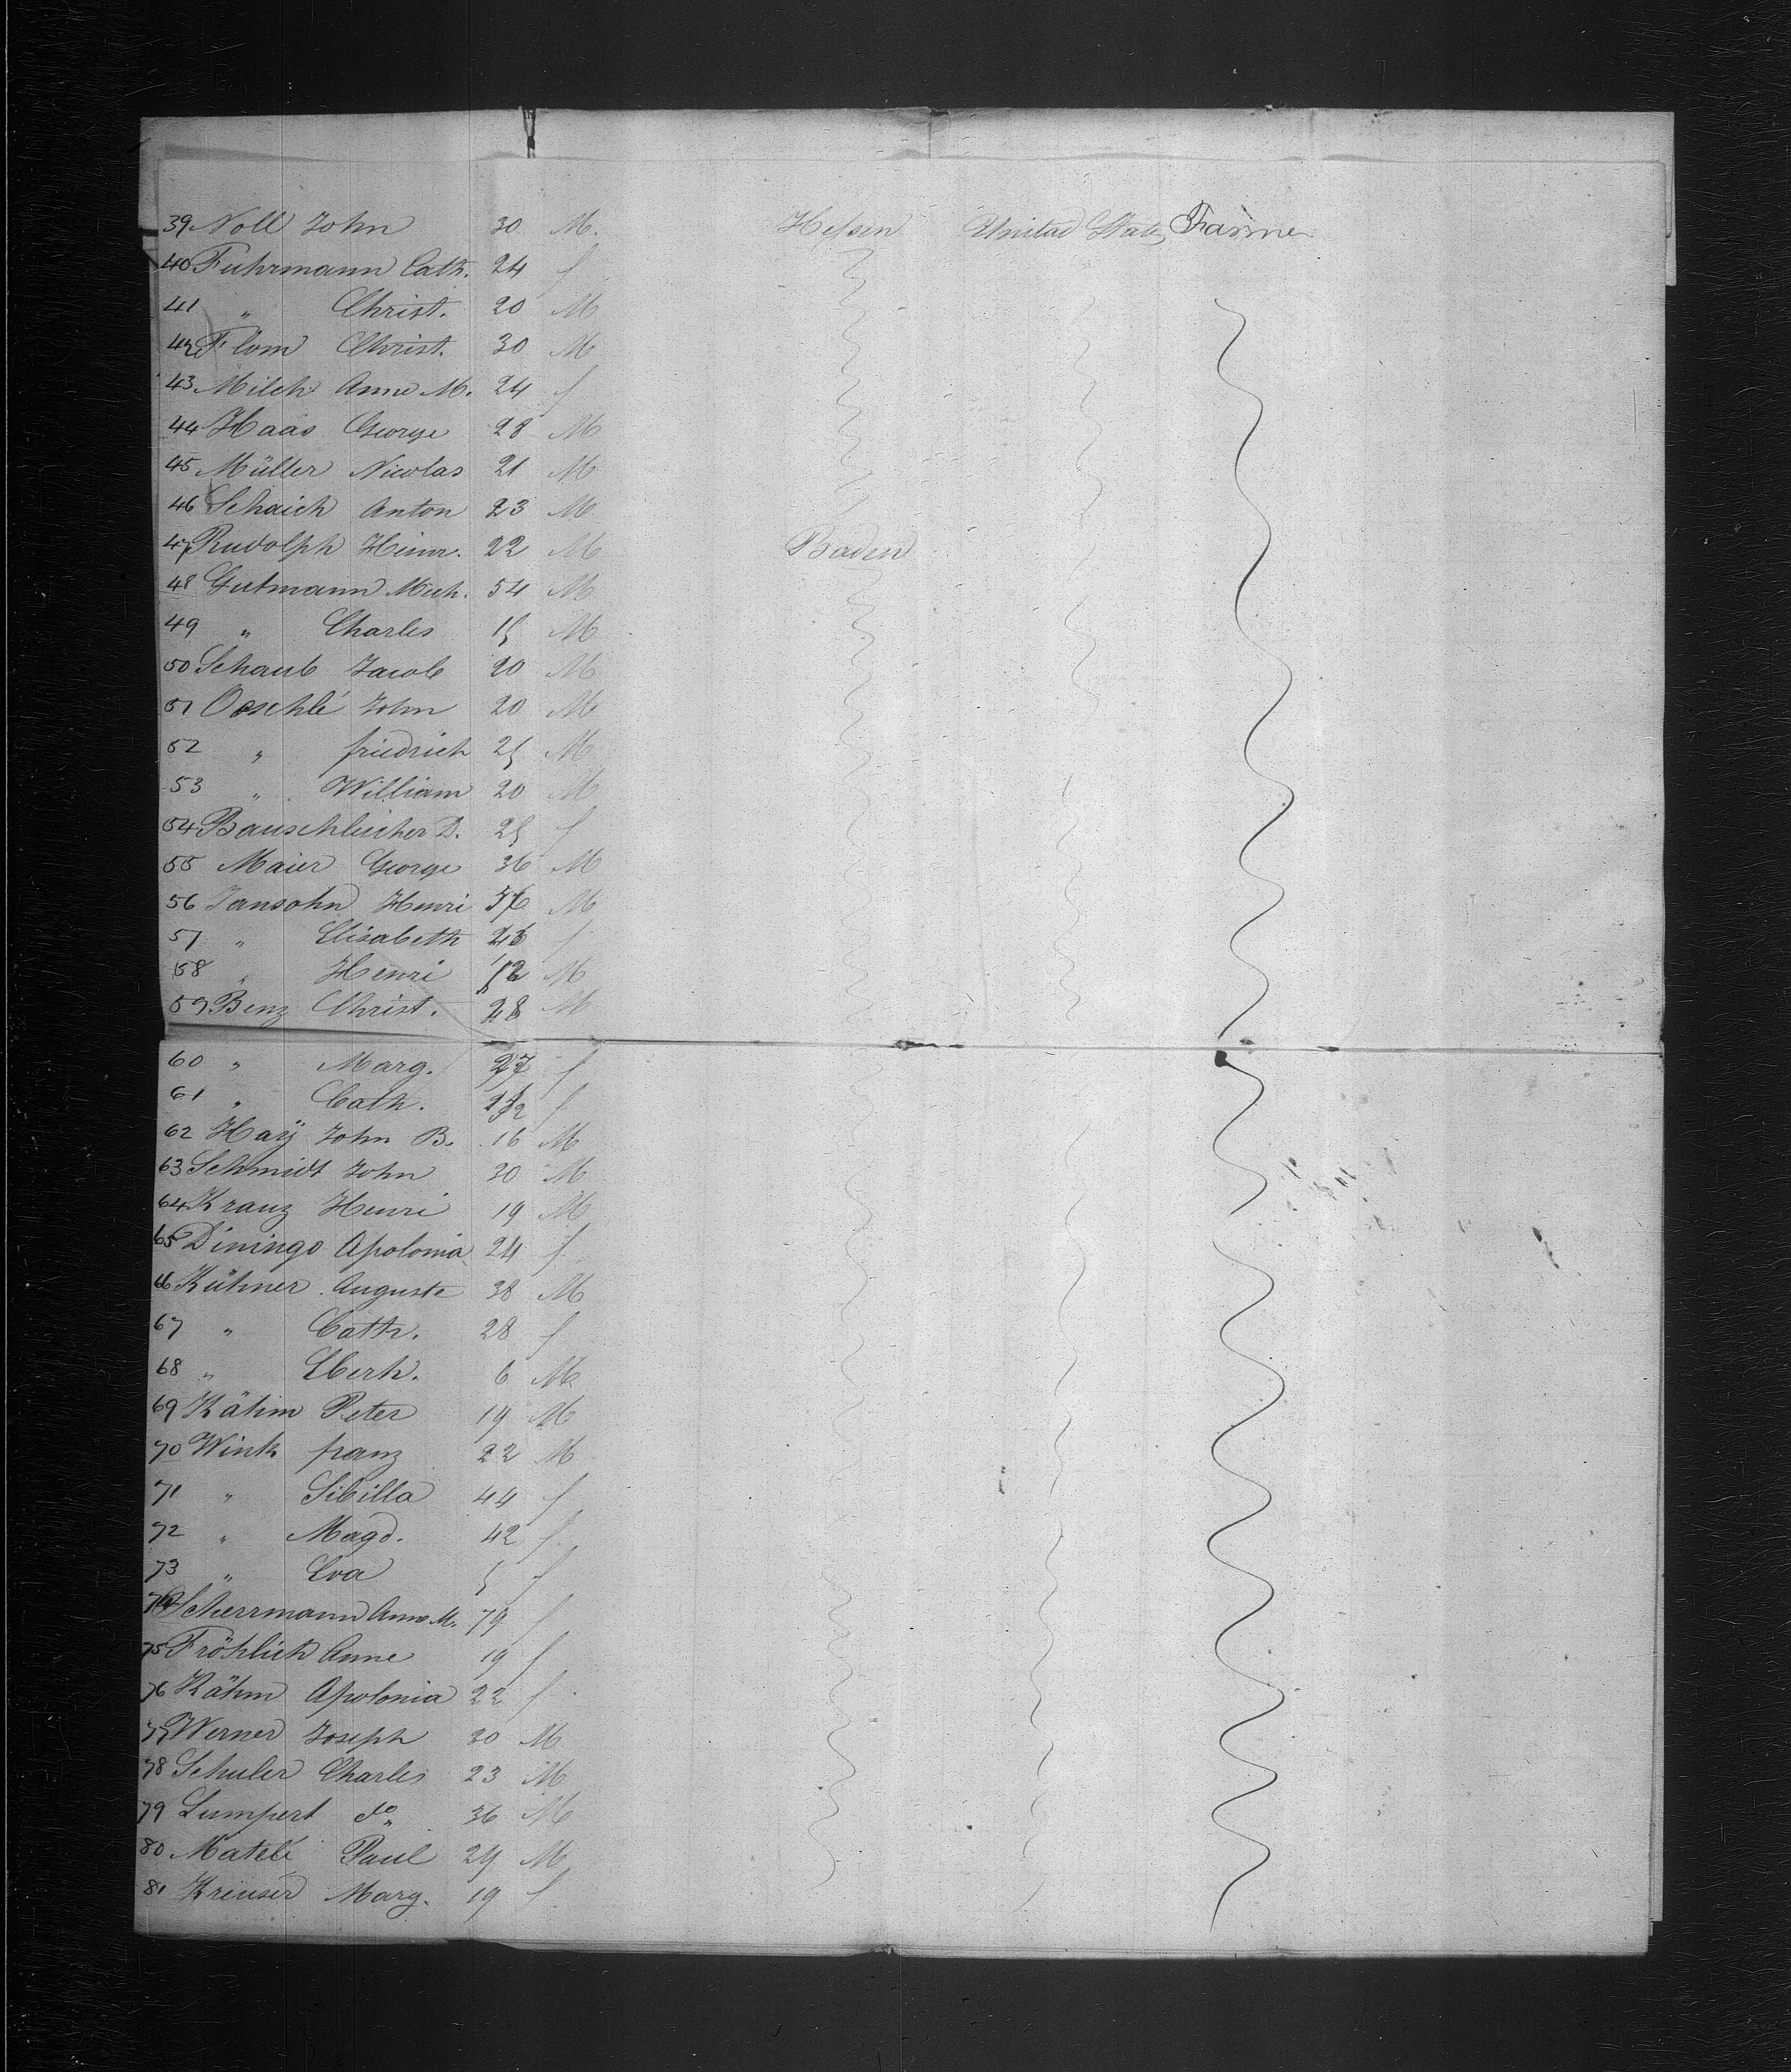 39 Noll John 30 M. Hessen United States Farmer
40 Fuhrmann Cath. 24 f
41 " Christ. 20 M
42 Flom Christ. 30 M
43 Milch Anne M. 24 f
44 Haas George 28 M
45 Müller Nicolas 21 M
46 Schaich Anton 23 M
47 Rudolph Heinr. 22 M Baden
48 Gutmann Mich. 54 M
49 " Charles 15 M
50 Schaub Jacob 20 M
51 Oeschlé John 20 M
52 " friedrich 25 M
53 " William 20 M
54 Bauschlicher D. 25 f
55 Maier George 36 M
56 Jansohn Henri M
57 " Elisabeth f
58 " Henri M
59 Benz Christ. 28 M
60 " Marg. 27 f
61 " Cath. f
62 Haÿ John B. 16 M
63 Schmidt John 20 M
64 Kranz Henri 19 M
65 Diningo Apolonia 24 f
66 Kühner Auguste 38 M
67 " Cath. 28 f
68 " Eberh. 6 M
69 Kähm Peter 19 M
70 Wink franz 22 M
71 " Sibilla 44 f
72 " Magd. 42 f
73 " Eva 5 f
74 Scherrmann Anne M. 79 f
75 Fröhlich Anne 19 f
76 Kähm Apolonia 22 f
77 Werner Joseph 30 M
78 Schuler Charles 23 M
79 Lumpert do " 36 M
80 Matelé Paul 29 M
81 Kreuser Marg. 19 f